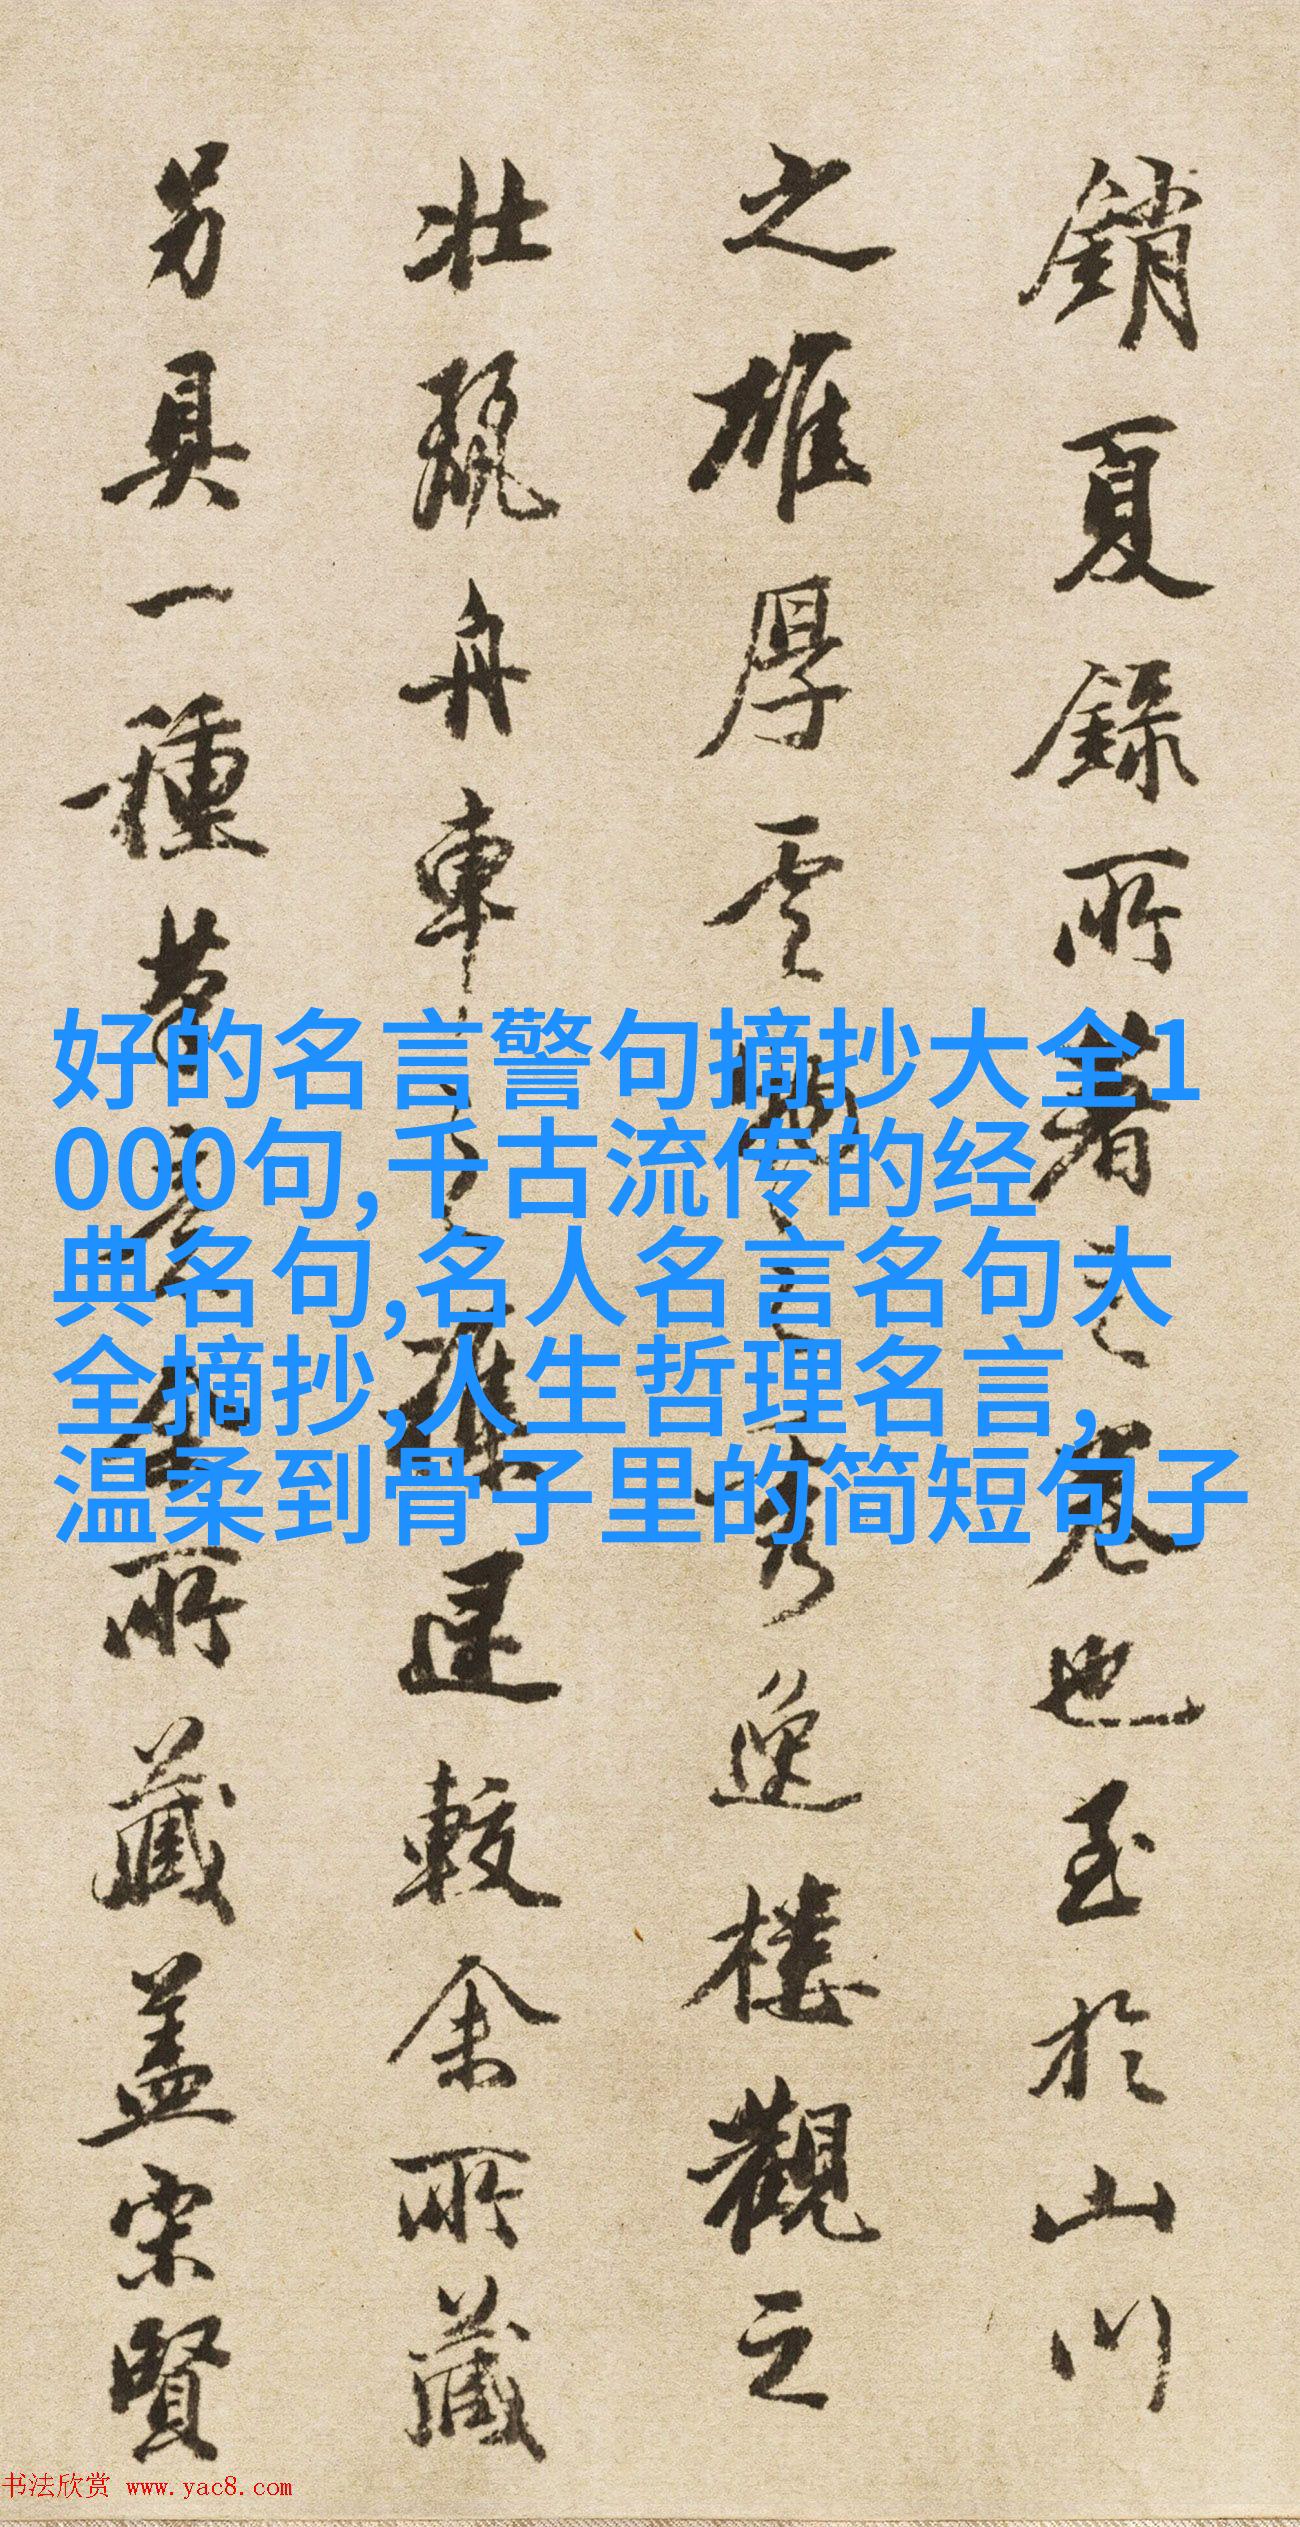 銷夏録所著之卷也至於山川
之雄厚雲物之秀逸樓觀之
壯麗舟車之較余所藏
另具一種筆所藏蓋宋賢
好的名言警句摘抄大全1
000句,千古流传的经
典名句,名人名言名句大
全摘抄,人生哲理名言,
温柔到骨子里的简短句子
书法欣赏 www.yac8.com